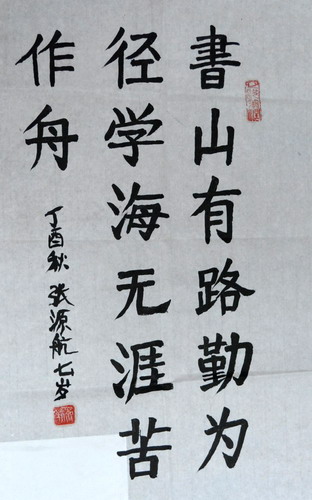 書山有路勤为
径学海无涯苦
作舟
丁酉秋 张源航七岁